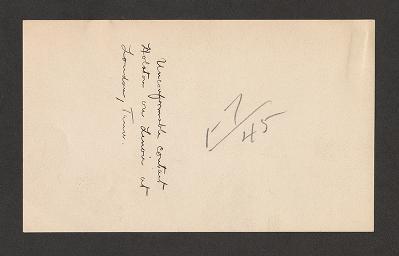 Unconformable contact
Holston on Lenoir at
Loudon, Tenn.